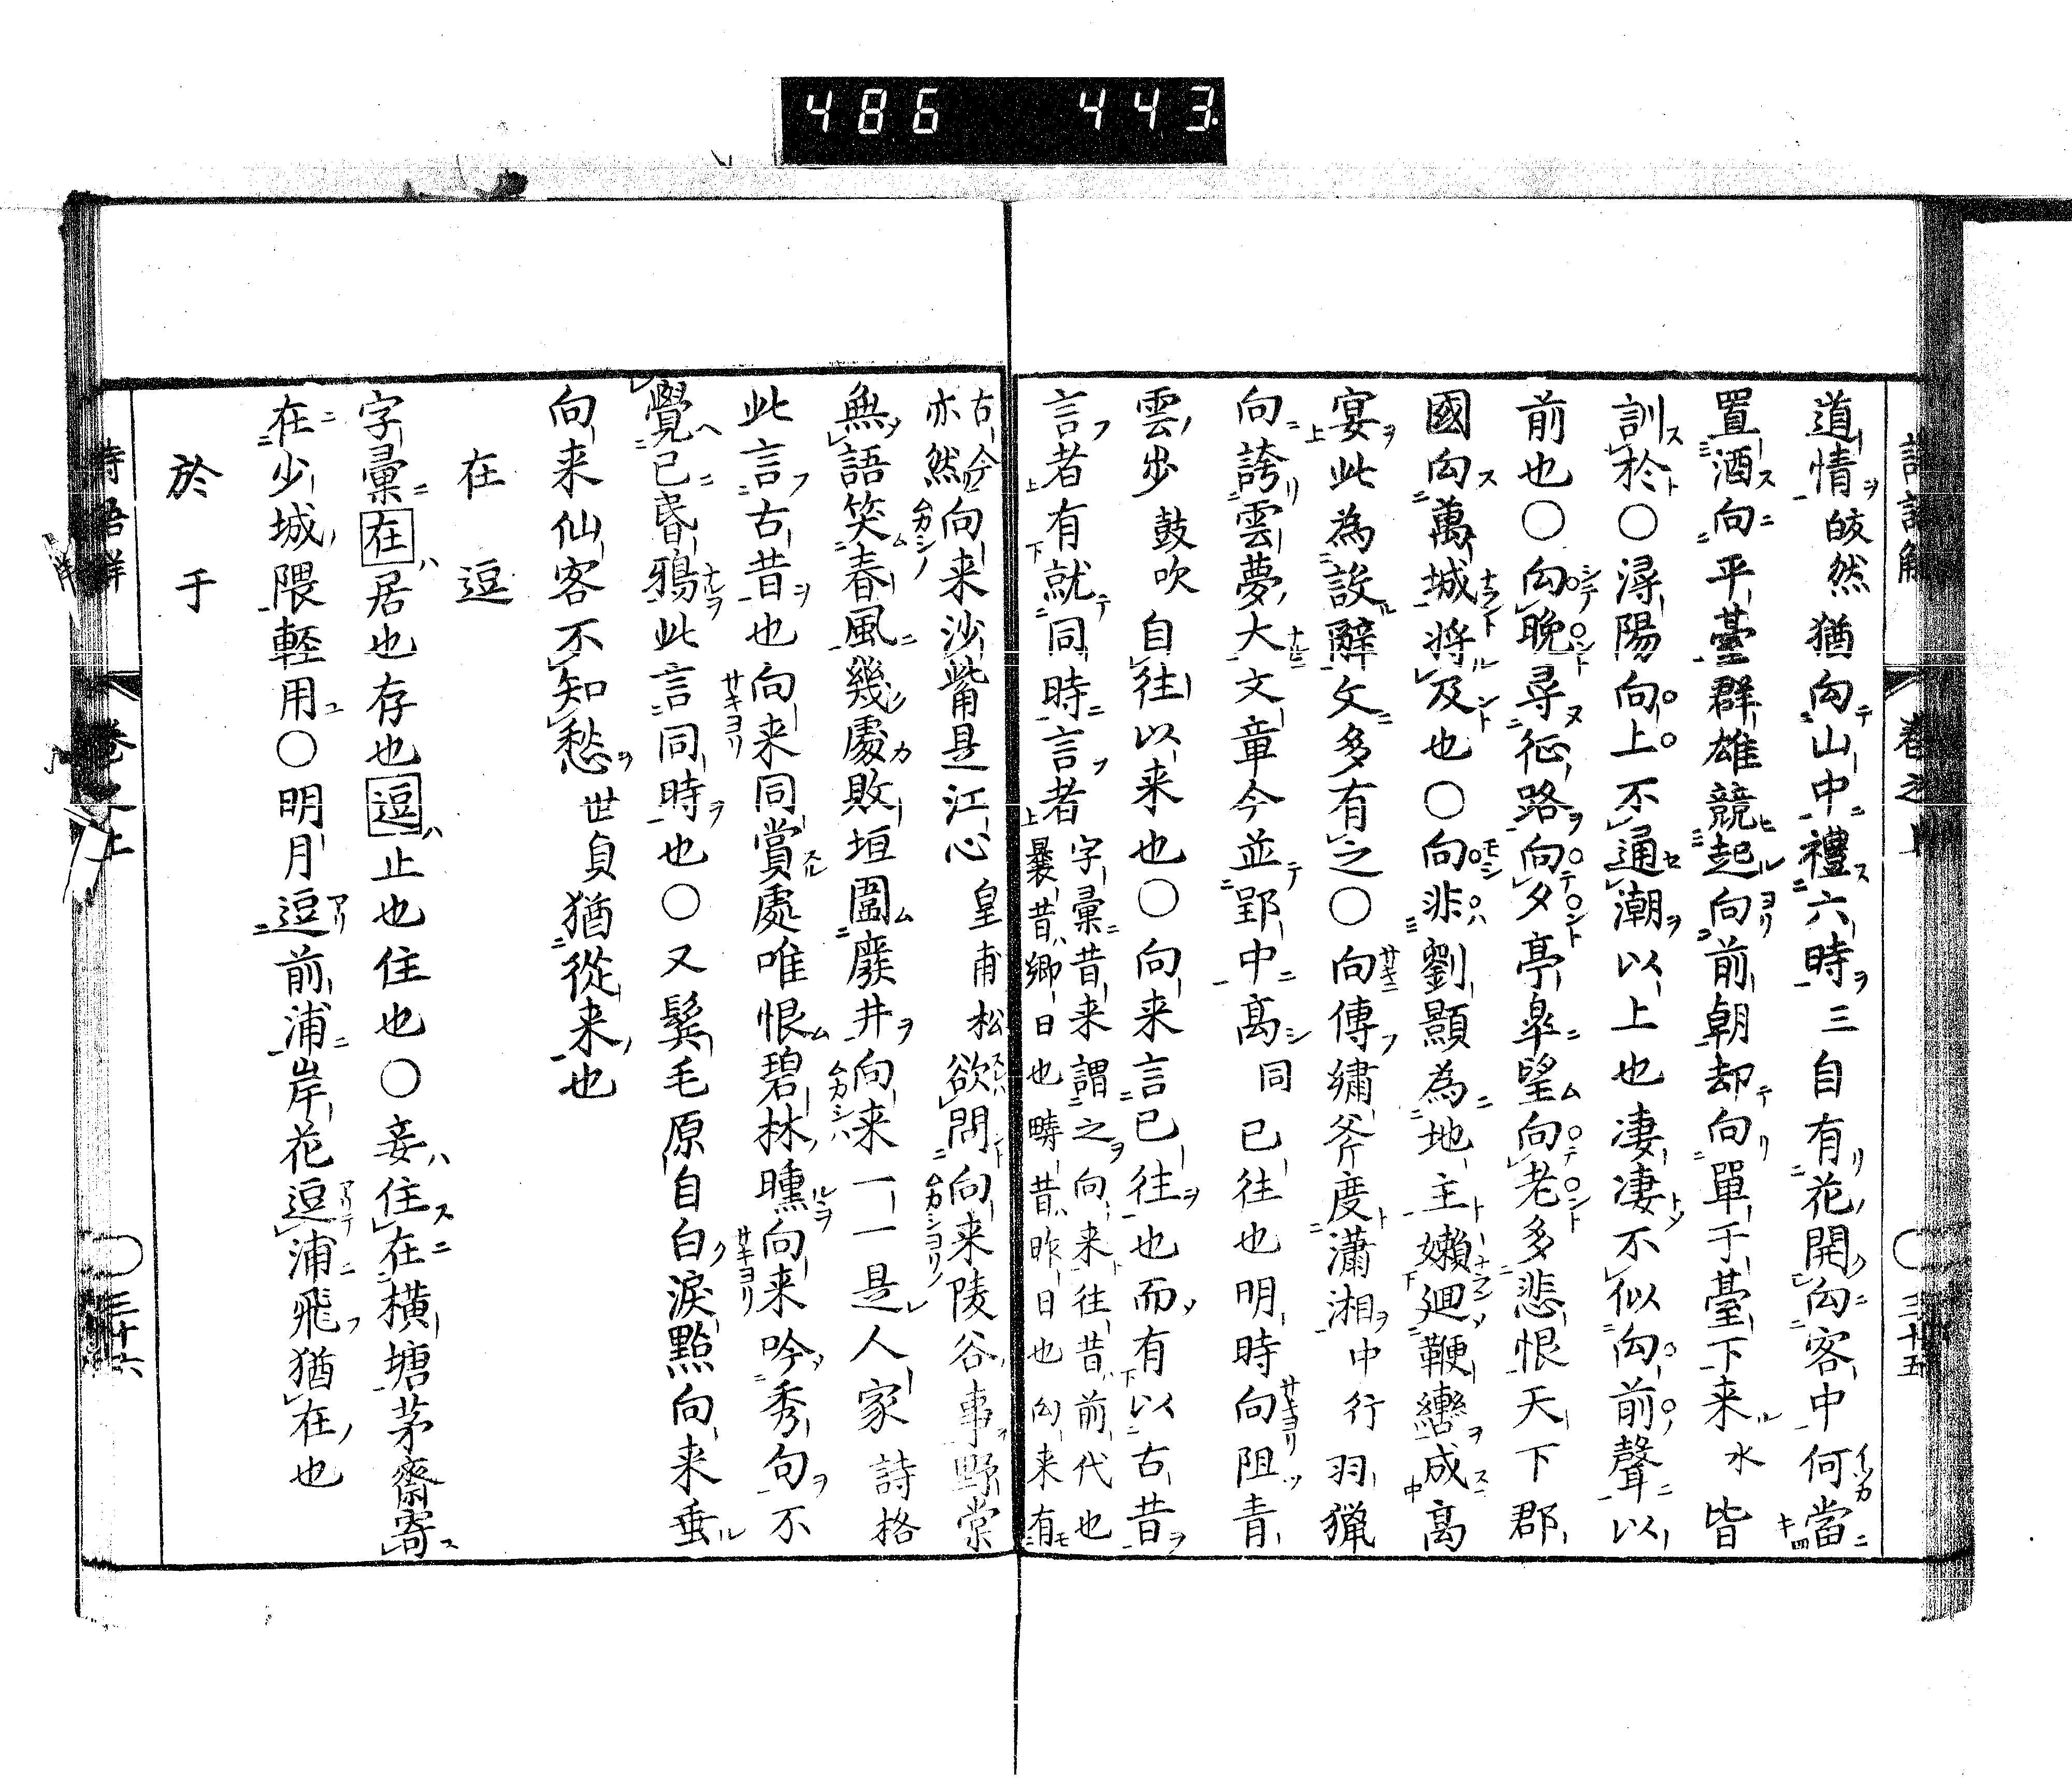 486 443
道情皎然猶向山中禮六時三自有花開向客中何當
置酒向平臺群雄競起向前朝却向單于臺下来水皆
訓於〇潯陽向上不通潮以上也凄凄不似向前聲以
前也〇向晚尋征路向夕亭皐望向老多悲恨天下郡
國向萬城將及也〇向非劉顯為地主嬾廻鞭轡成高
宴此為設辭文多有之〇向傳繡斧度瀟湘中行羽獵
向誇雲夢大文章今並郢中高同已往也明時向阻青
雲步鼓吹自往以来也〇向来言已往也而有以古昔
言者有就同時言者字彙昔来謂之向来往昔前代也
曩昔鄉日也疇昔昨日也向来有
古今
亦然向来沙觜是江心皇甫松欲問向来陵谷事野棠
無語笑春風幾處敗垣圍廢井向来一一是人家詩格
此言古昔也向来同賞處唯恨碧林曛向来吟秀句不
覺已昏鴉此言同時也〇又鬂毛原自白淚點向来垂
向来仙客不知愁世貞猶從来也
在逗
字彙在居也存也逗止也住也〇妾住在橫塘茅齋寄
在少城隈輕用〇明月逗前浦岸花逗浦飛猶在也
於于
卷之上 三十五
詩語解 卷之上 三十六